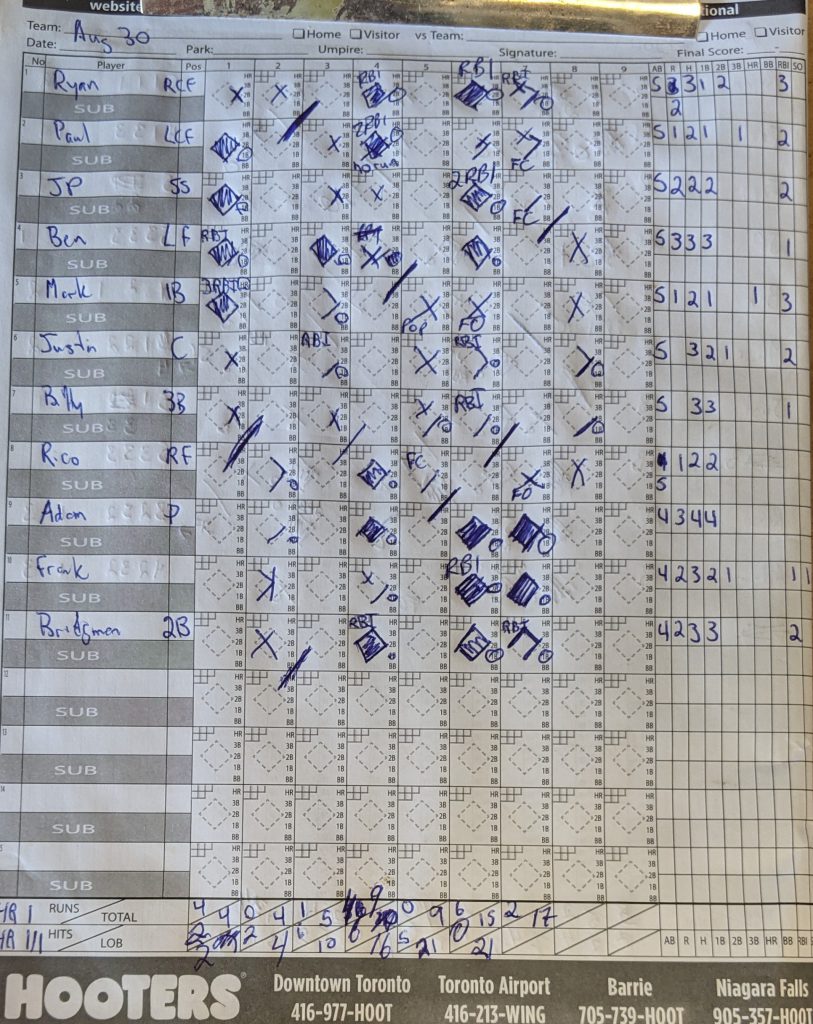 website
tional
Team: Aug 30 Home Visitor vs Team: Home Visitor
Date: Park: Umpire: Signature: Final Score:
No Player Pos 1 2 3 4 5 8 9 AB R H 1B 2B 3B HR BB RBI SO
1 Ryan RCF RBI RBI RBI 5 3 1 2 3
SUB 2
2 Paul LCF 2RBI FC 5 1 2 1 1 2
SUB no run
3 JP SS 2RBI FC 5 2 2 2 2
SUB
4 Ben LF RBI 5 3 3 3 1
SUB
5 Mark 1B 3RBI POP FO 5 1 2 1 1 3
SUB
6 Justin C RBI RBI 5 3 2 1 2
SUB
7 Billy 3B RBI 5 3 3 1
SUB
8 Rico RF FC FO 1 2 2
SUB 5
9 Adam P 4 3 4 4
SUB
10 Frank RBI 4 2 3 2 1 1 1
SUB
11 Bridgman 2B RBI RBI 4 2 3 3 2
SUB
12
SUB
13
SUB
14
SUB
SUB
HR 1 RUNS TOTAL 4 4 0 4 1 5 9 0 9 6 15 2 17
HR 1/1 HITS LOB 2 2 4 6 10 6 16 5 21 0 21 AB R H 1B 2B 3B HR BB RBI
HOOTERS
Downtown Toronto Toronto Airport Barrie Niagara Falls
416-977-HOOT 416-213-WING 705-739-HOOT 905-357-HOOT